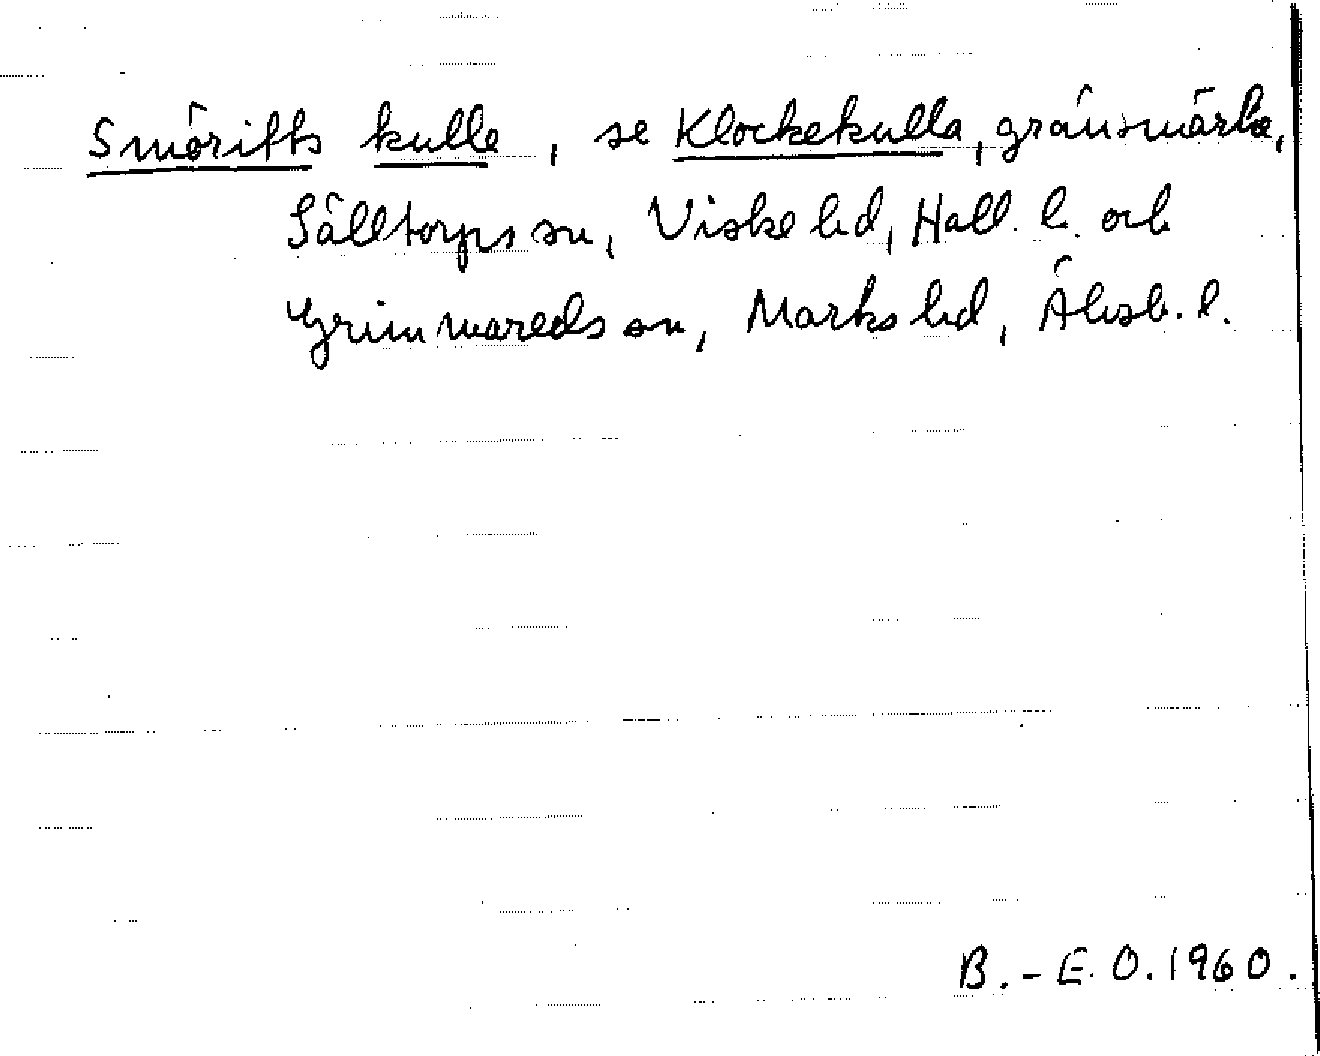 Smörifts kulle, se Klockekulla, gränsmärke,
Sälltorps sn, Viske hd, Hall. l. och
Grimmareds sn, Marks hd, Älvsb. l.
B.-E.O. 1960.